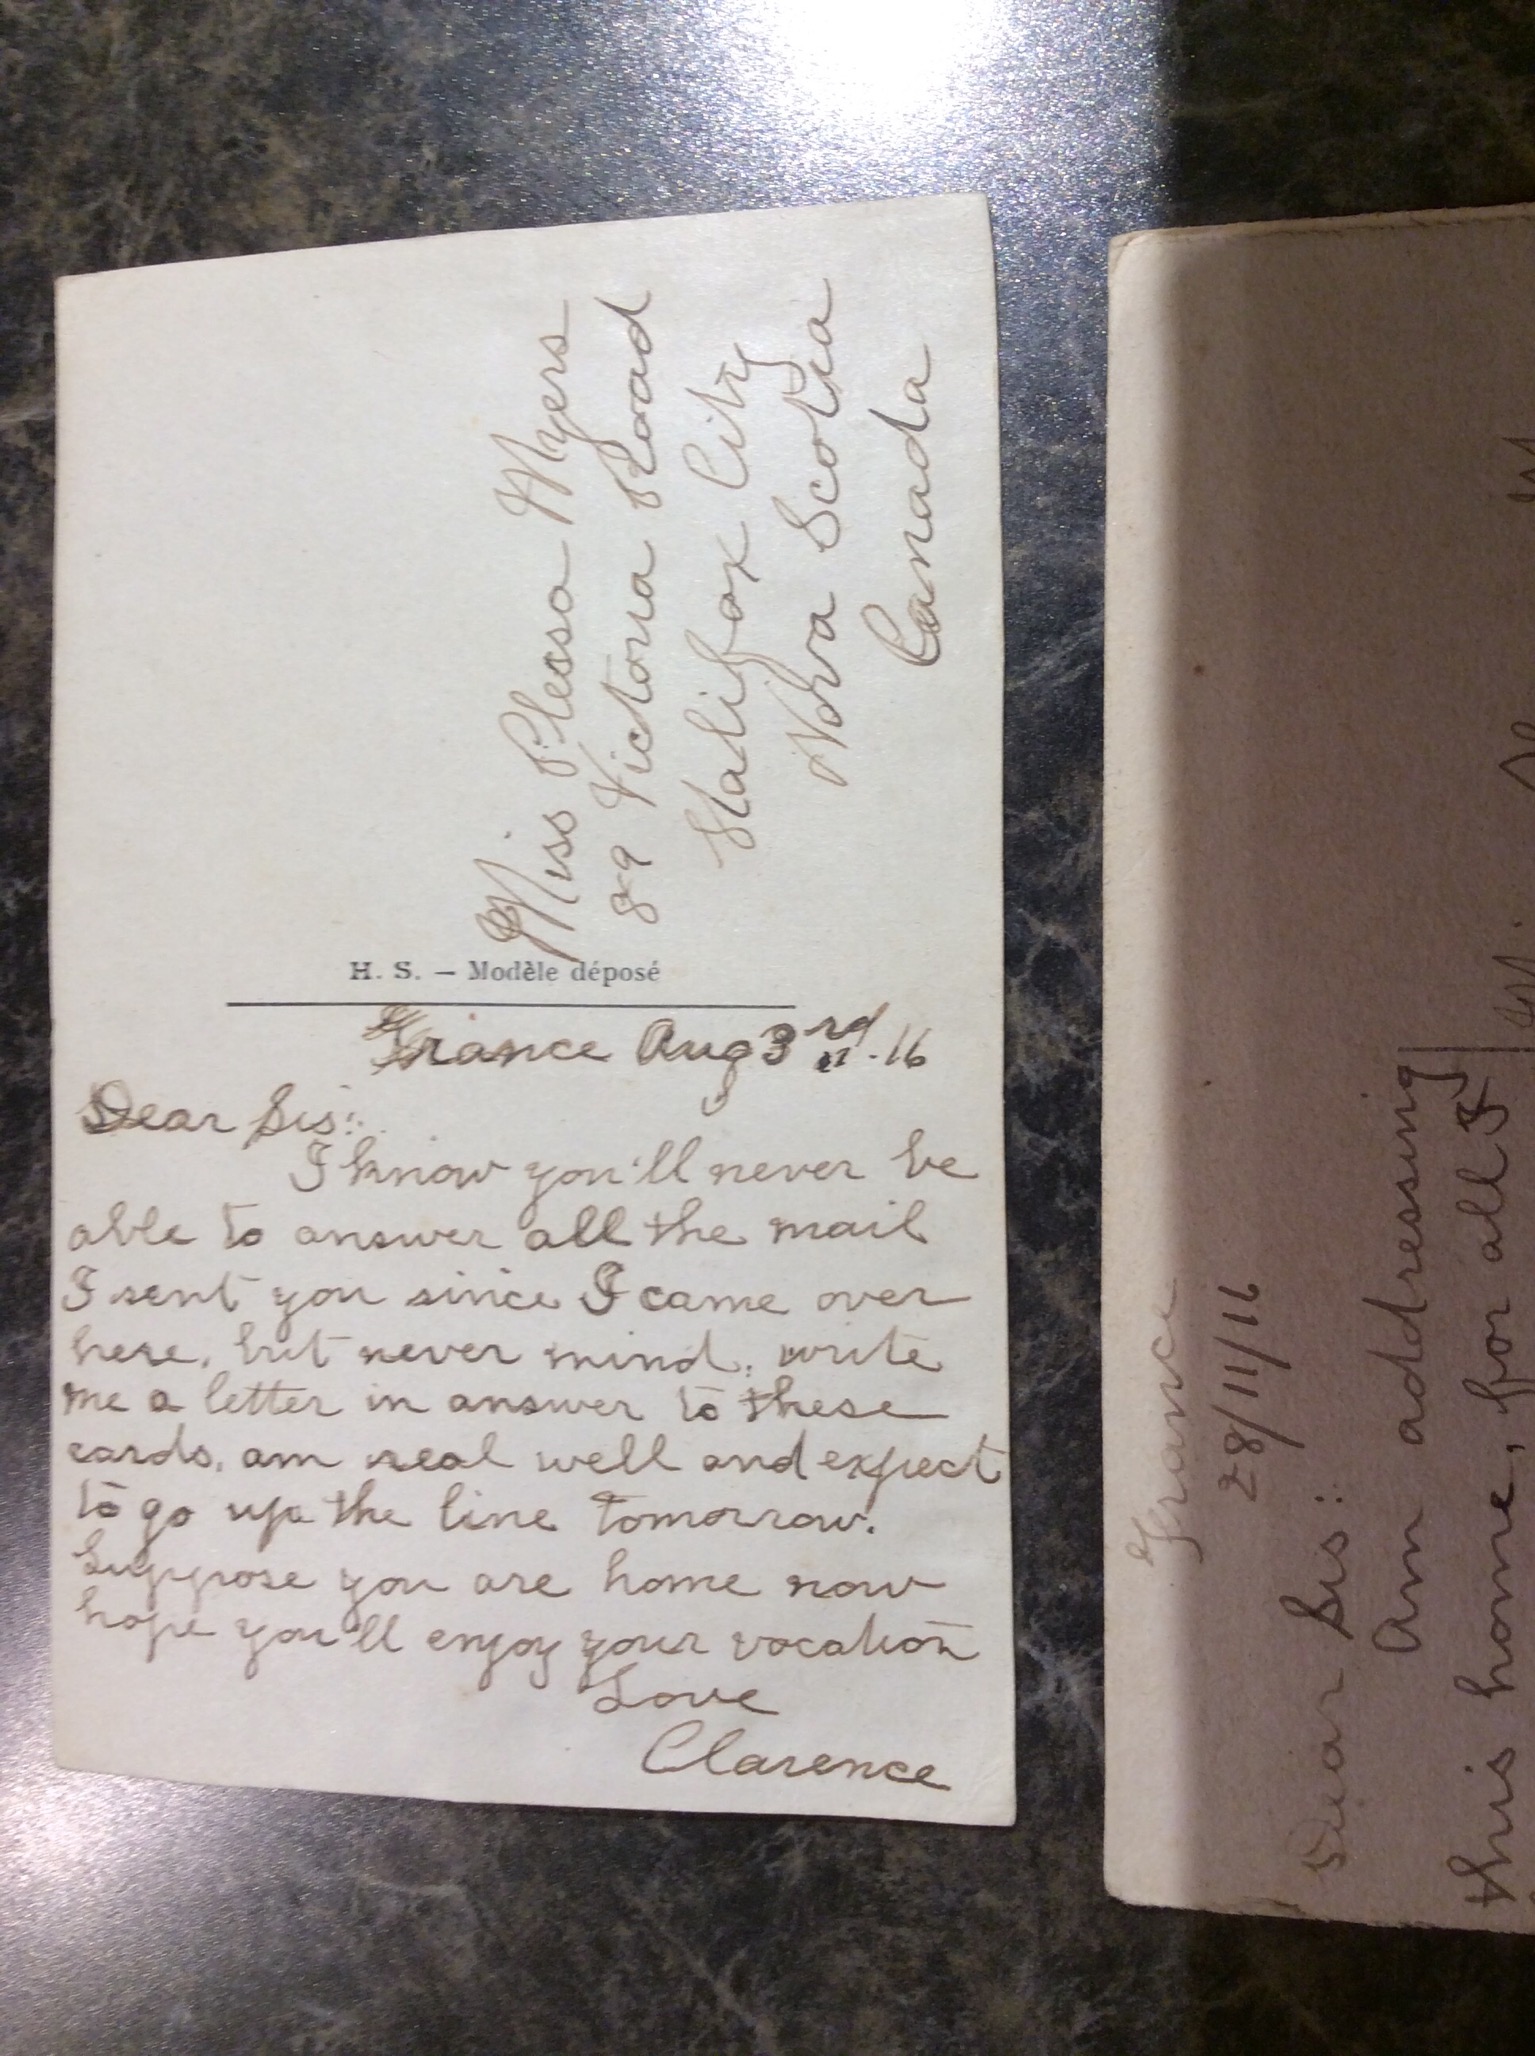 Miss Plessa Myers
89 Victoria Road
Halifax City
Nova Scotia
Canada
H. S. — Modèle déposé
France Aug 3rd .16
Dear Sis:
I know you'll never be
able to answer all the mail
I sent you since I came over
here, but never mind. write
me a letter in answer to these
cards. am real well and expect
to go up the line tomorrow.
Suppose you are home now
hope you'll enjoy your vocation
Love
Clarence
France
28/11/16
Dear Sis:
Am addressing
this home, for all I